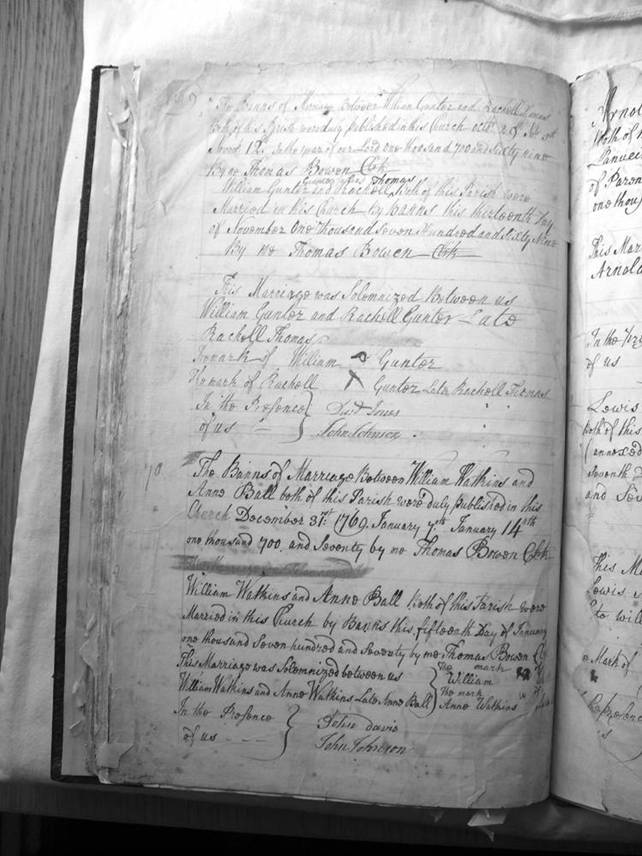 The Banns of Marriage between William Gunter and Rachell Thomas
both of this Parish were duly published in this Church octbr 29
Novbr 12. In the year of our Lord one thousand 700 and Sixty nine
By me Thomas Bowen Clk
William Gunter and Rachell Thomas both of this Parish were
Married in this Church By Banns this thirteenth Day
of November One thousand Seven Hundred and Sixty Nine
By me Thomas Bowen Clk
This Marriage was Solemnized Between us
William Gunter and Rachell Gunter Late
Rachell Thomas
The mark of William Gunter
The mark of Rachell X Gunter Late Rachell Thomas
In the Presence } Davd Jones
of us } John Johnson
The Banns of Marriage Between William Watkins and
Anne Ball both of this Parish were duly published in this
Church December 31st 1769. January 7th January 14th
one thousand 700. and Seventy by me Thomas Bowen Clk
William Watkins and Anne Ball both of this Parish were
Married in this Church by Banns this fifteenth Day of January
one thousand Seven hundred and Seventy by me Thomas Bowen
This Marriage was Solemnized between us } The mark
William
William Watkins and Anne Watkins Late Anne Ball } The mark
Anne Watkins
In the Presence } John davis
of us } John Johnson
Arnold
both of
of
one thou
This Mar
Arnold
In the
of us
Lewis
both of this
(annexed
seventh
and Sev
This M
Lewis
to will
Mark of